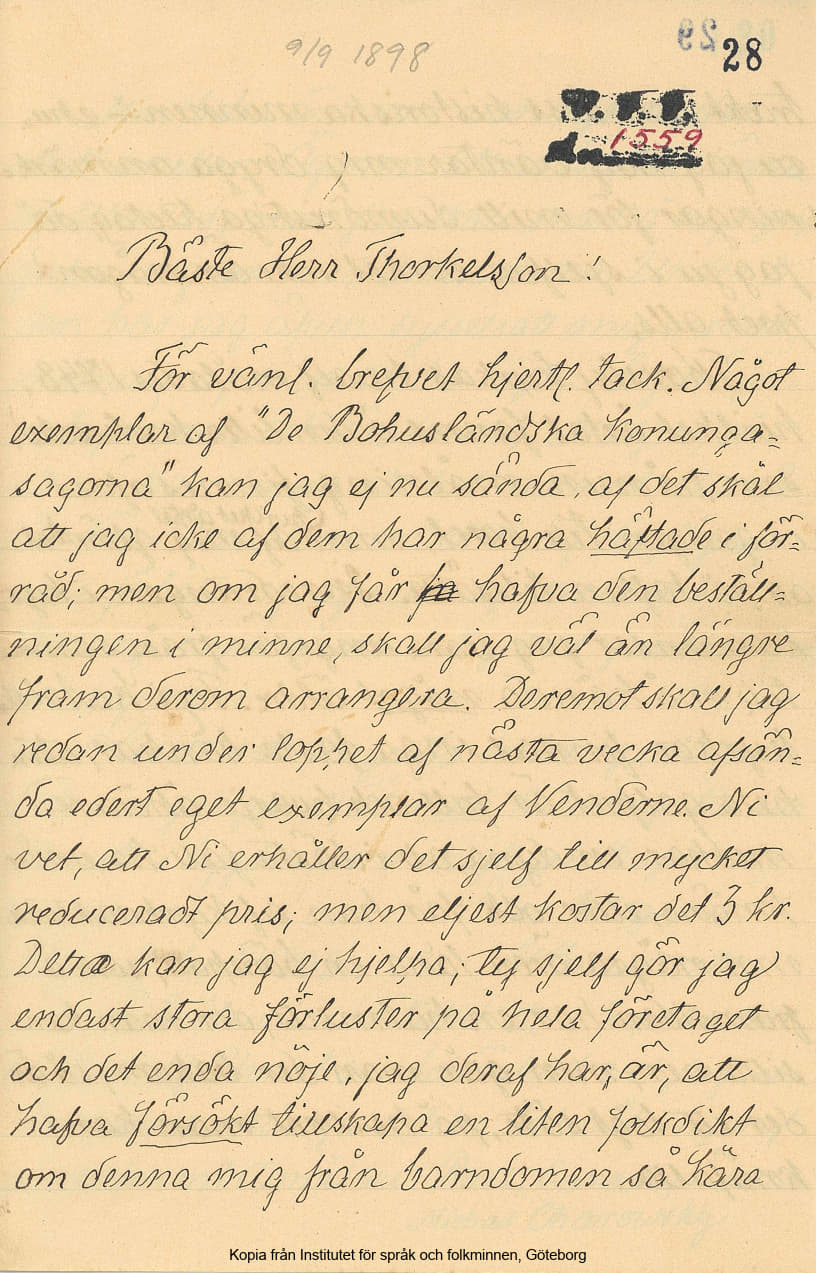 9/9 1898
29
28
V. F. F.
1559
Bäste Herr Thorkelsson!
För vänl. brefvet hjertl. tack. Något
exemplar af "De Bohusländska Konunga=
sagorna" kan jag ej nu sända, af det skäl
att jag icke af dem har några häftade i för=
råd; men om jag får fa hafva den beställ=
ningen i minne, skall jag väl än längre
fram derom arrangera. Deremot skall jag
redan under loppet af nästa vecka afsän=
da edert eget exemplar af Venderne. Ni
vet, att Ni erhåller det sjelf till mycket
reduceradt pris; men eljest kostar det 3 kr.
Detta kan jag ej hjelpa; ty sjelf gör jag
endast stora förluster på hela företaget
och det enda nöje, jag deraf har, är, att
hafva försökt tillskapa en liten folkdikt
om denna mig från barndomen så kära
Kopia från Institutet för språk och folkminnen, Göteborg